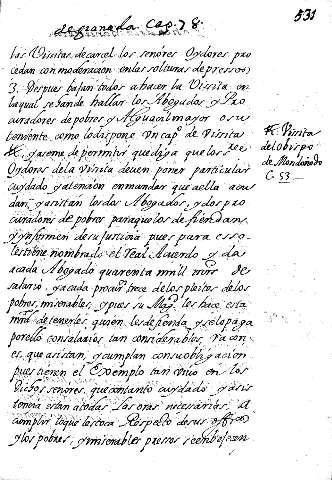 de granada Cap. 78.
531
las Visitas de carcel los señores Oydores pro
cedan con moderacion en las solturas de pressos
3. Despues bajan todos a hacer la Vissita en
la qual se han de hallar los Abogados y Pro
curadores de pobres y Alguacil mayor o su
teniente como lo dispone vn cap.º de vissita
y a se me de permitir que diga que los ss.es
Oydores de la visita deven poner particular
cuydado y atencion en mandar que a ella acu
dan, y asistan los dos Abogados, y dos pro
curadores de pobres para que los defiendan,
y ynformen de su justicia pues para esso
les tiene nombrado el real Acuerdo y da
a cada Abogado quarenta mill mrs de
salario, y a cada procu.or trece de los pleitos de los
pobres, miserables, y pues su Mag.d les hace esta
mrd de tenerles, quien los defienda, y se lo paga
por ello con salarios tan considerables, racon
es, que asistan, y cumplan con su obligacion
pues tienen el Exemplo tan vivo en los
dichos señores, que con tanto cuydado y asis
tencia estan a todas las oras necesarias, a
cumplir lo que les toca Respecto de sus officios
y los pobres, y miserables pressos
Vissita
del obispo
de Mondoñedo
C. 53